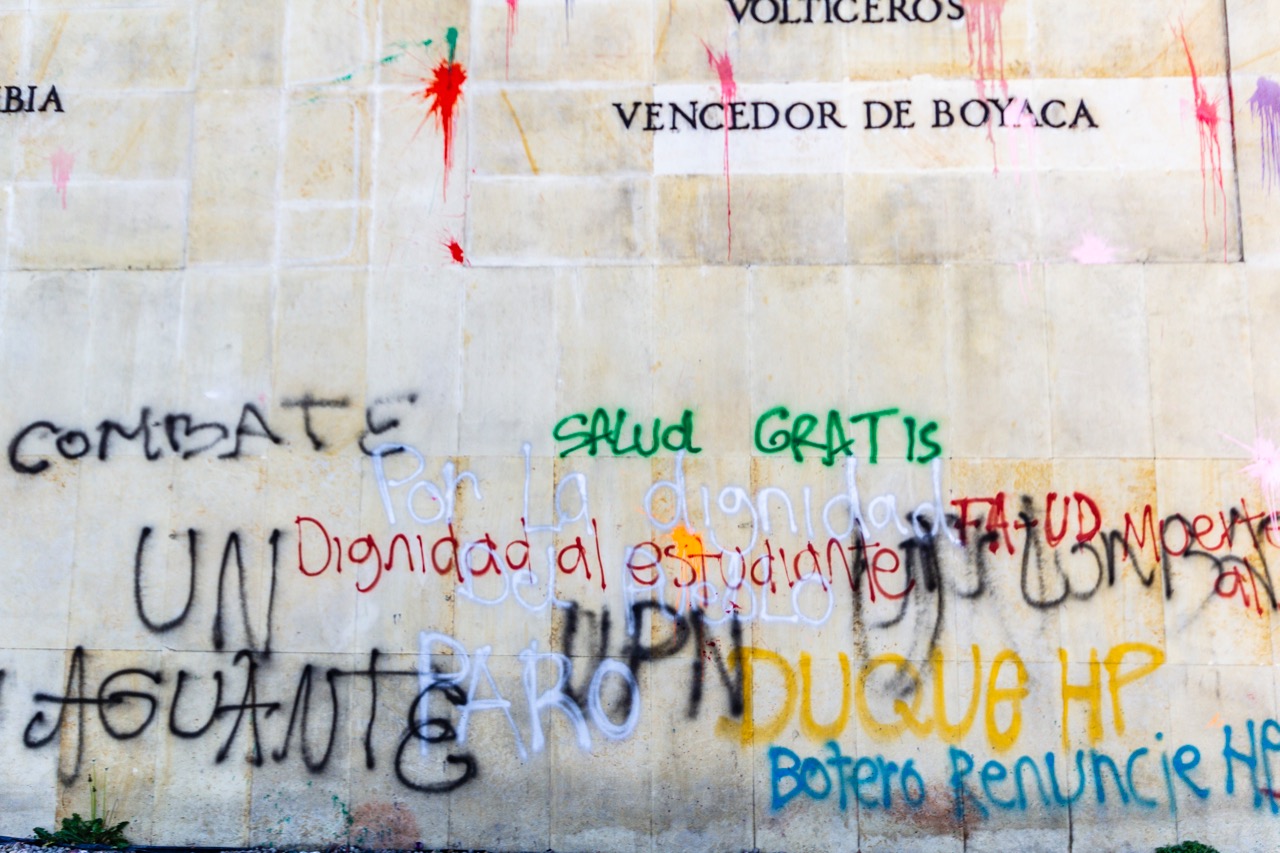 VOLTIGEROS
BIA
VENCEDOR DE BOYACA
COMBATE
SALUd GRATIS
Por La dignidad
Del PUEbLO
PARO
UN
Dignidad al estudiante
FA+UD Muerte
al
UPN
AGUANTE
DUQUE HP
Botero Renuncie HP